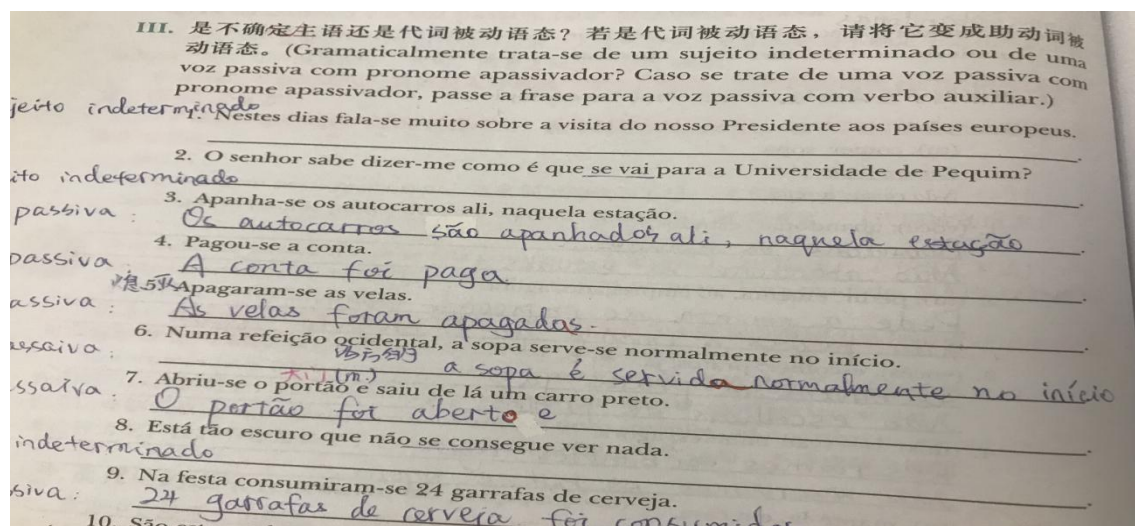 III. 是不确定主语还是代词被动语态？若是代词被动语态，请将它变成助动词被
动语态。(Gramaticalmente trata-se de um sujeito indeterminado ou de uma
voz passiva com pronome apassivador? Caso se trate de uma voz passiva com
pronome apassivador, passe a frase para a voz passiva com verbo auxiliar.)
jeito indeterminado
Nestes dias fala-se muito sobre a visita do nosso Presidente aos países europeus.
2. O senhor sabe dizer-me como é que se vai para a Universidade de Pequim?
ito indeterminado
3. Apanha-se os autocarros ali, naquela estação.
passiva: Os autocarros são apanhados ali, naquela estação.
4. Pagou-se a conta.
passiva A conta foi paga.
5. Apagaram-se as velas.
assiva: As velas foram apagadas.
6. Numa refeição ocidental, a sopa serve-se normalmente no início.
西方的
a sopa é servida normalmente no início
大门(m.)
7. Abriu-se o portão e saiu de lá um carro preto.
O portão foi aberto e
8. Está tão escuro que não se consegue ver nada.
indeterminado
9. Na festa consumiram-se 24 garrafas de cerveja.
siva: 24 garrafas de cerveja foi
10. São